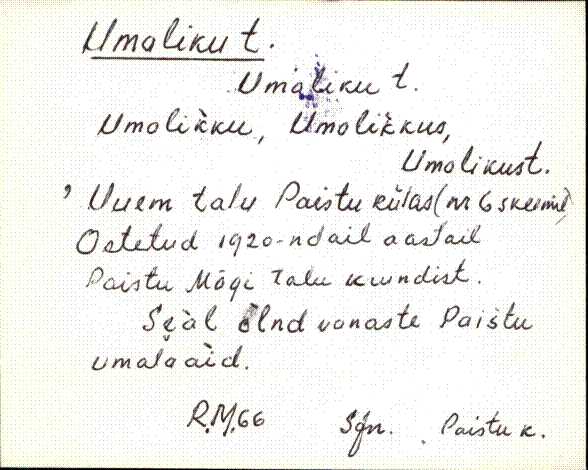 Umaliku t.
Umaliku t.
Umolik̀ku, Umolik̀kus,
Umolikust.
, Uuem talu Paistu külas (nr 6 skeemil)
Ostetud 1920-ndail aastail
Paistu Mõgi talu krundist.
Seàl õlnd vanaste Paistu
umalaaid.
R.M.66 Sjn. Paistu k.